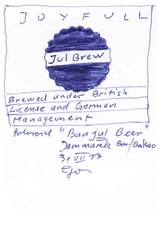 JOYFULL
Jul Brew
Brewed under British
License and German
Management
Polaroid "Banjul Beer"
31 VII